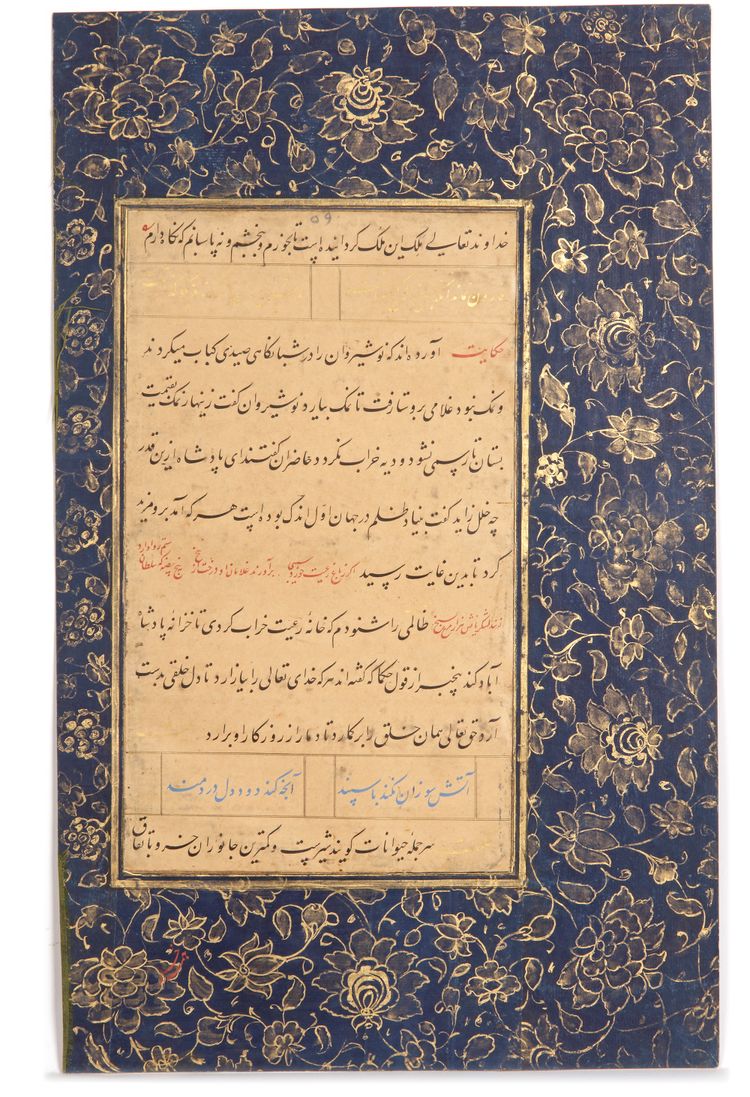 ۵۹
خداوند تعالی ملک این ملک کردانیده است تا بخورم و ببخشم و نه پاسبانم که نکاه دارم
حکایت آورده اند که نوشیروان را در شکارگاهی صیدی کباب میکردند
و نمک نبود غلامی بروستا رفت تا نمک بیارد نوشیروان گفت زینهار نمک بقیمت
بستان تا رسمی نشود و دیه خراب نکردد حاضران گفتند ای پادشاه ازین قدر
چه خلل زاید گفت بنیاد ظلم در جهان اول اندک بوده است هر که آمد برو مزید
کرد تا بدین غایت رسید اگر ز باغ رعیت خورد سیبی برآورند غلامان او درخت از بیخ بپنج بیضه که سلطان ستم روا دارد
زنند لشکریانش هزار مرغ بسیخ ظالمی را شنودم که خانه رعیت خراب کردی تا خزانه پادشاه
آباد کند بیخبر از قول حکما که گفته اند هر که خدای تعالی را بیازارد تا دل خلقی بدست
آرد حق تعالی همان خلق را بر کمارد تا دمار از روزکار او برارد
آتش سوزان نکند با سپند آنچه کند دود دل دردمند
سرجمله حیوانات کویند شیر است و کمترین جانوران خر و باتفاق